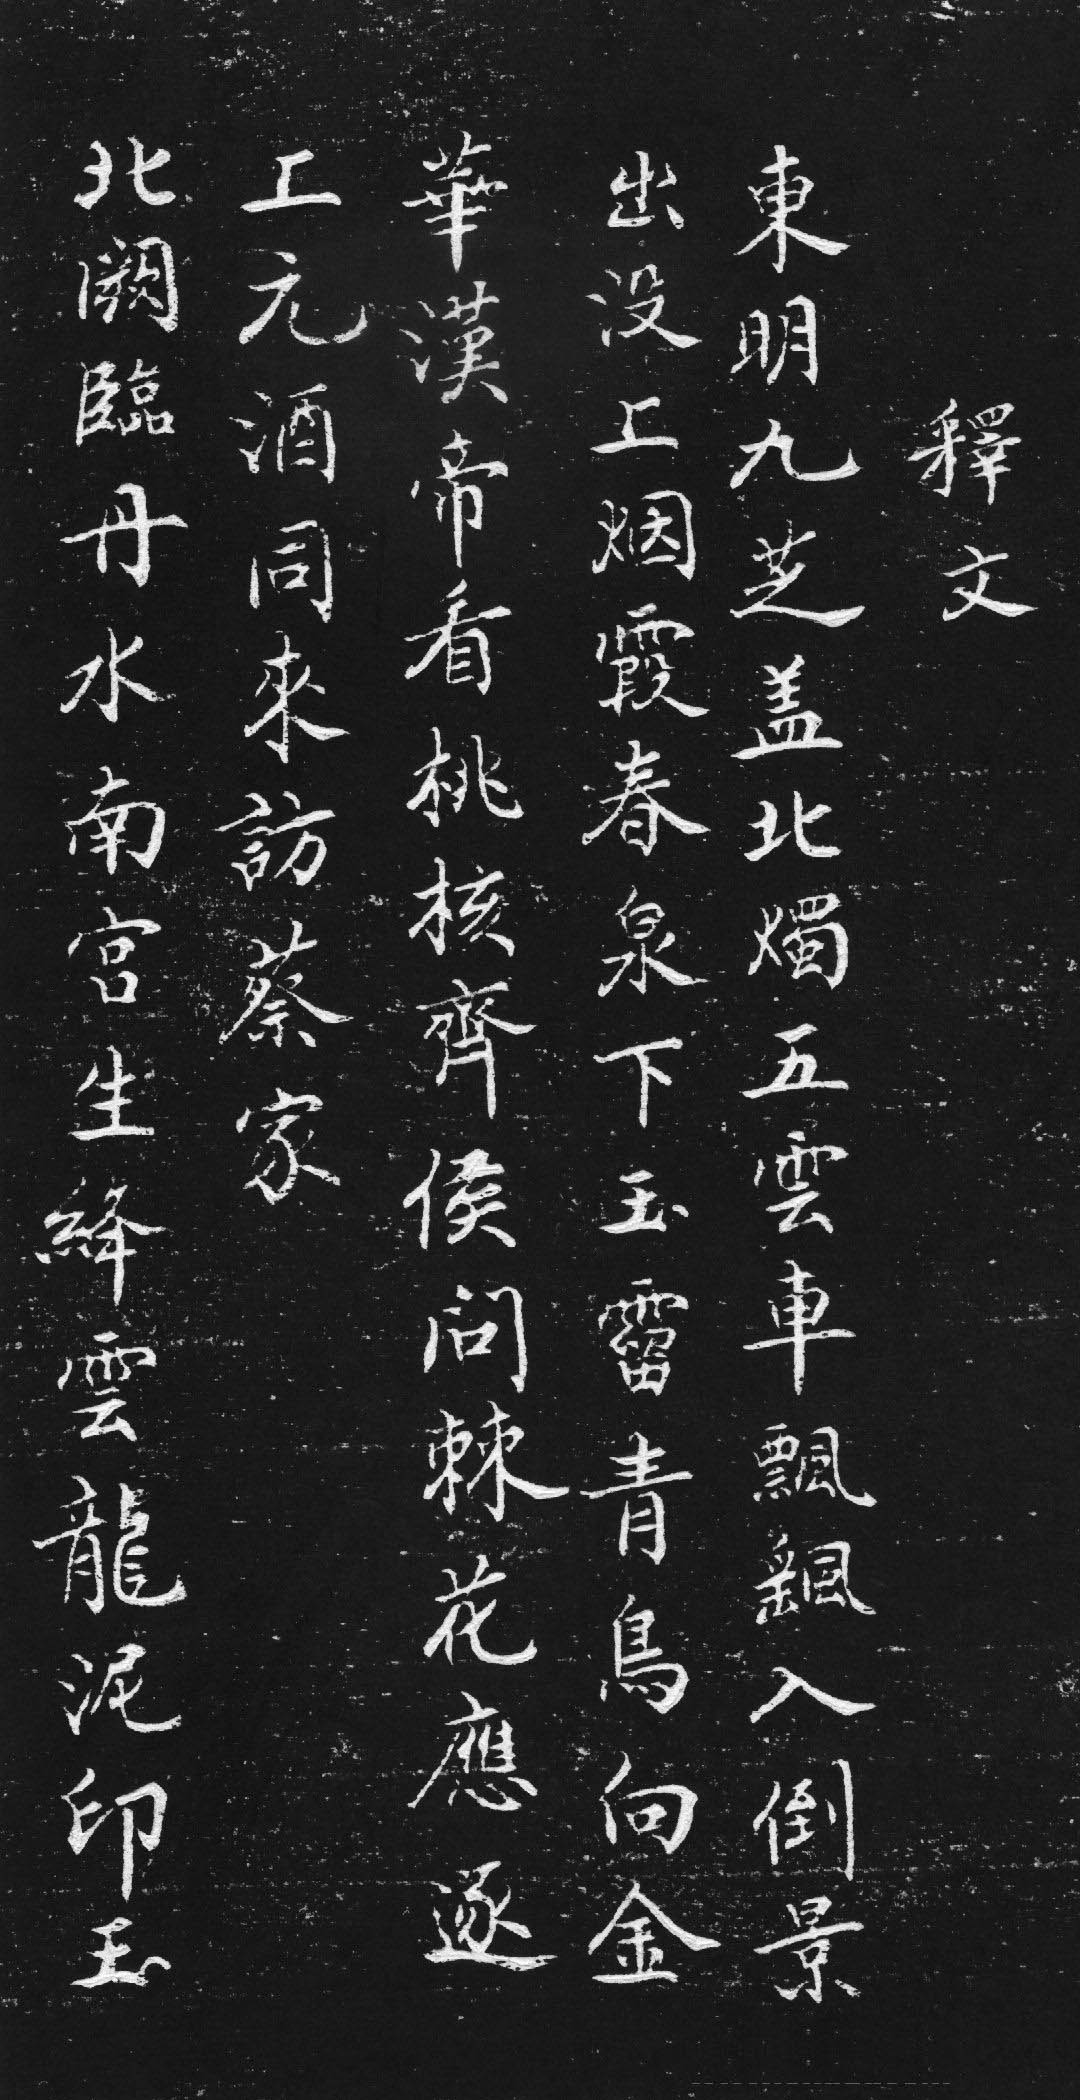 釋文
東明九芝盖北燭五雲車飄飖入倒景
出没上烟霞春泉下玉霤青鳥向金
華漢帝看桃核齊侯問棘花應逐
上元酒同來訪蔡家
北闕臨丹水南宫生絳雲龍泥印玉